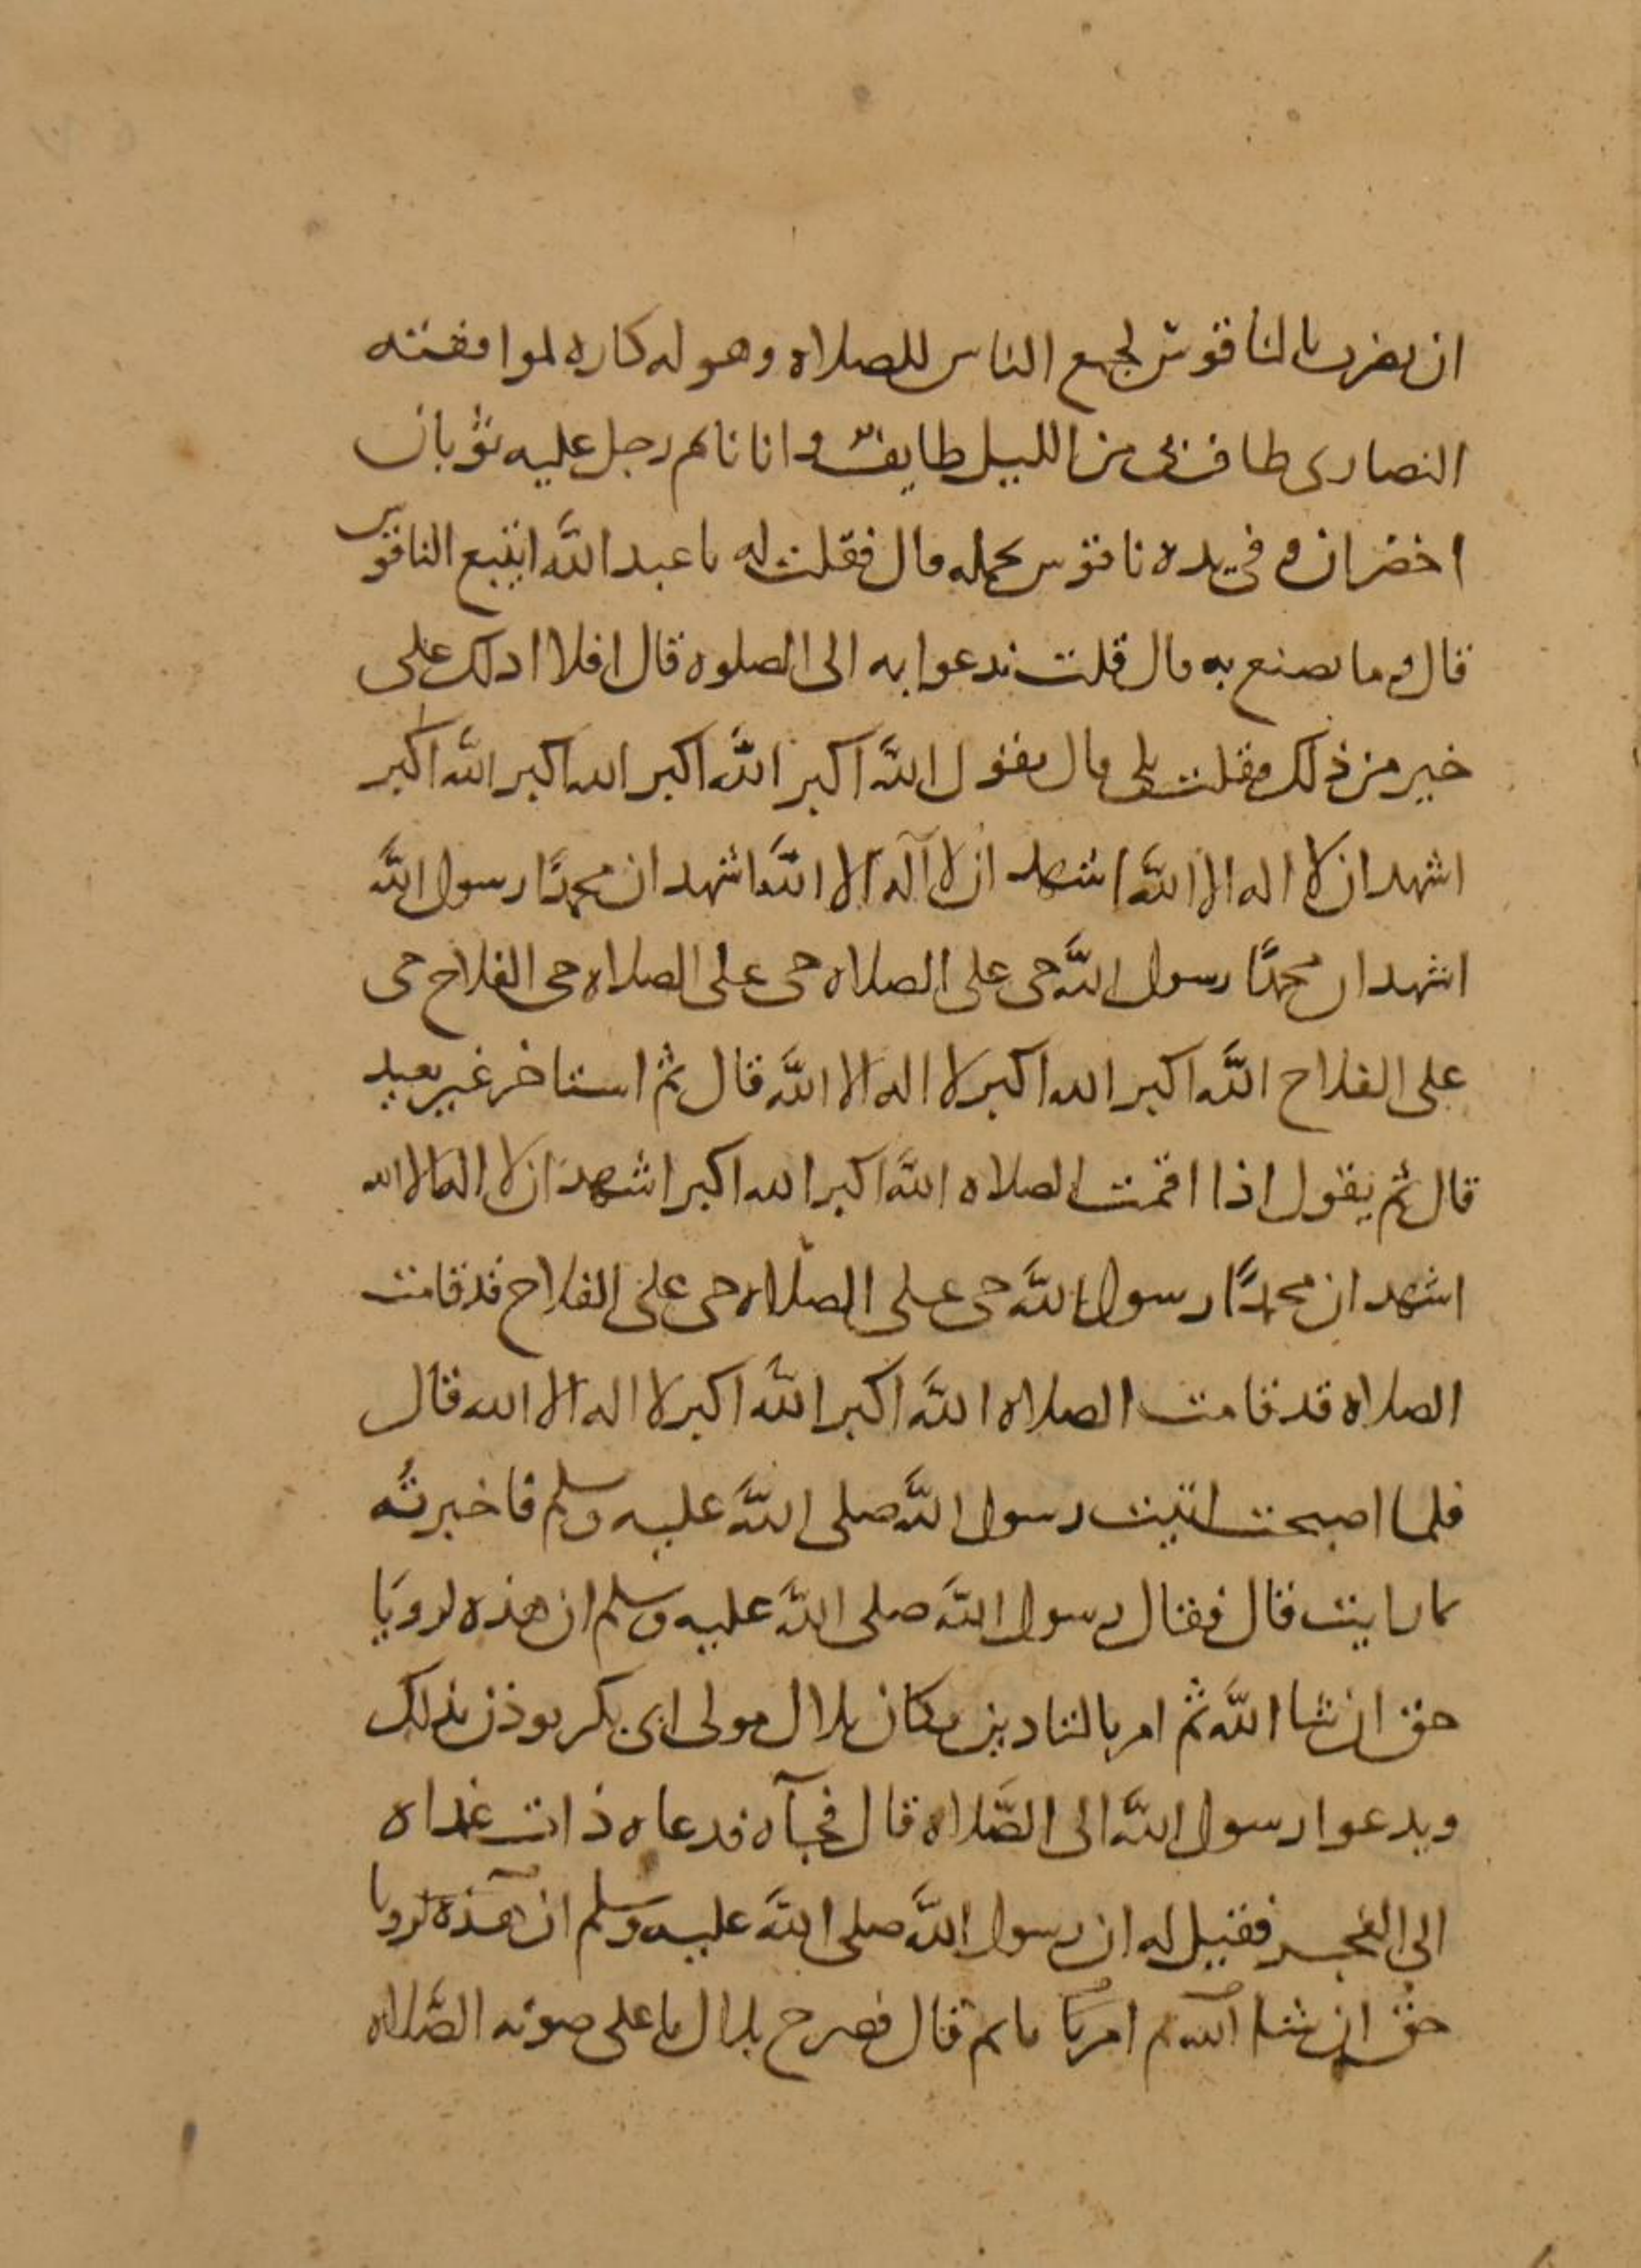 ان يضرب بالناقوس لجمع الناس للصلاه وهو له كاره لموافقته
النصارى طاف بى من الليل طايف وانا نايم رجل عليه ثوبان
اخضران وفى يده ناقوس يحمله قال فقلت له يا عبد الله اتبيع الناقوس
قال وما تصنع به قال قلت ندعوا به الى الصلوه قال افلا ادلك على
خير من ذلك فقلت بلى قال تقول الله اكبر الله اكبر الله اكبر الله اكبر
اشهد ان لا اله الا الله اشهد ان لا اله الا الله اشهد ان محمدًا رسول الله
اشهد ان محمدًا رسول الله حى على الصلاه حى على الصلاه حى الفلاح حى
على الفلاح الله اكبر الله اكبر لا اله الا الله قال ثم استاخر غير بعيد
قال ثم يقول اذا اقمت الصلاه الله اكبر الله اكبر اشهد ان لا اله الا الله
اشهد ان محمدًا رسول الله حى على الصلاه حى على الفلاح قد قامت
الصلاه قد قامت الصلاه الله اكبر الله اكبر لا اله الا الله قال
فلما اصبحت اتيت رسول الله صلى الله عليه وسلم فاخبرته
بما رايت قال فقال رسول الله صلى الله عليه وسلم ان هذه لرويا
حق ان شا الله ثم امر بالتاذين فكان بلال مولى ابى بكر يوذن بذلك
ويدعوا رسول الله الى الصلاه قال فجآه فدعاه ذات غداه
الى الفجر فقيل له ان رسول الله صلى الله عليه وسلم ان هذه لرويا
حق ان شا الله ثم امر نايم قال فصرخ بلال باعلى صوته الصلاه